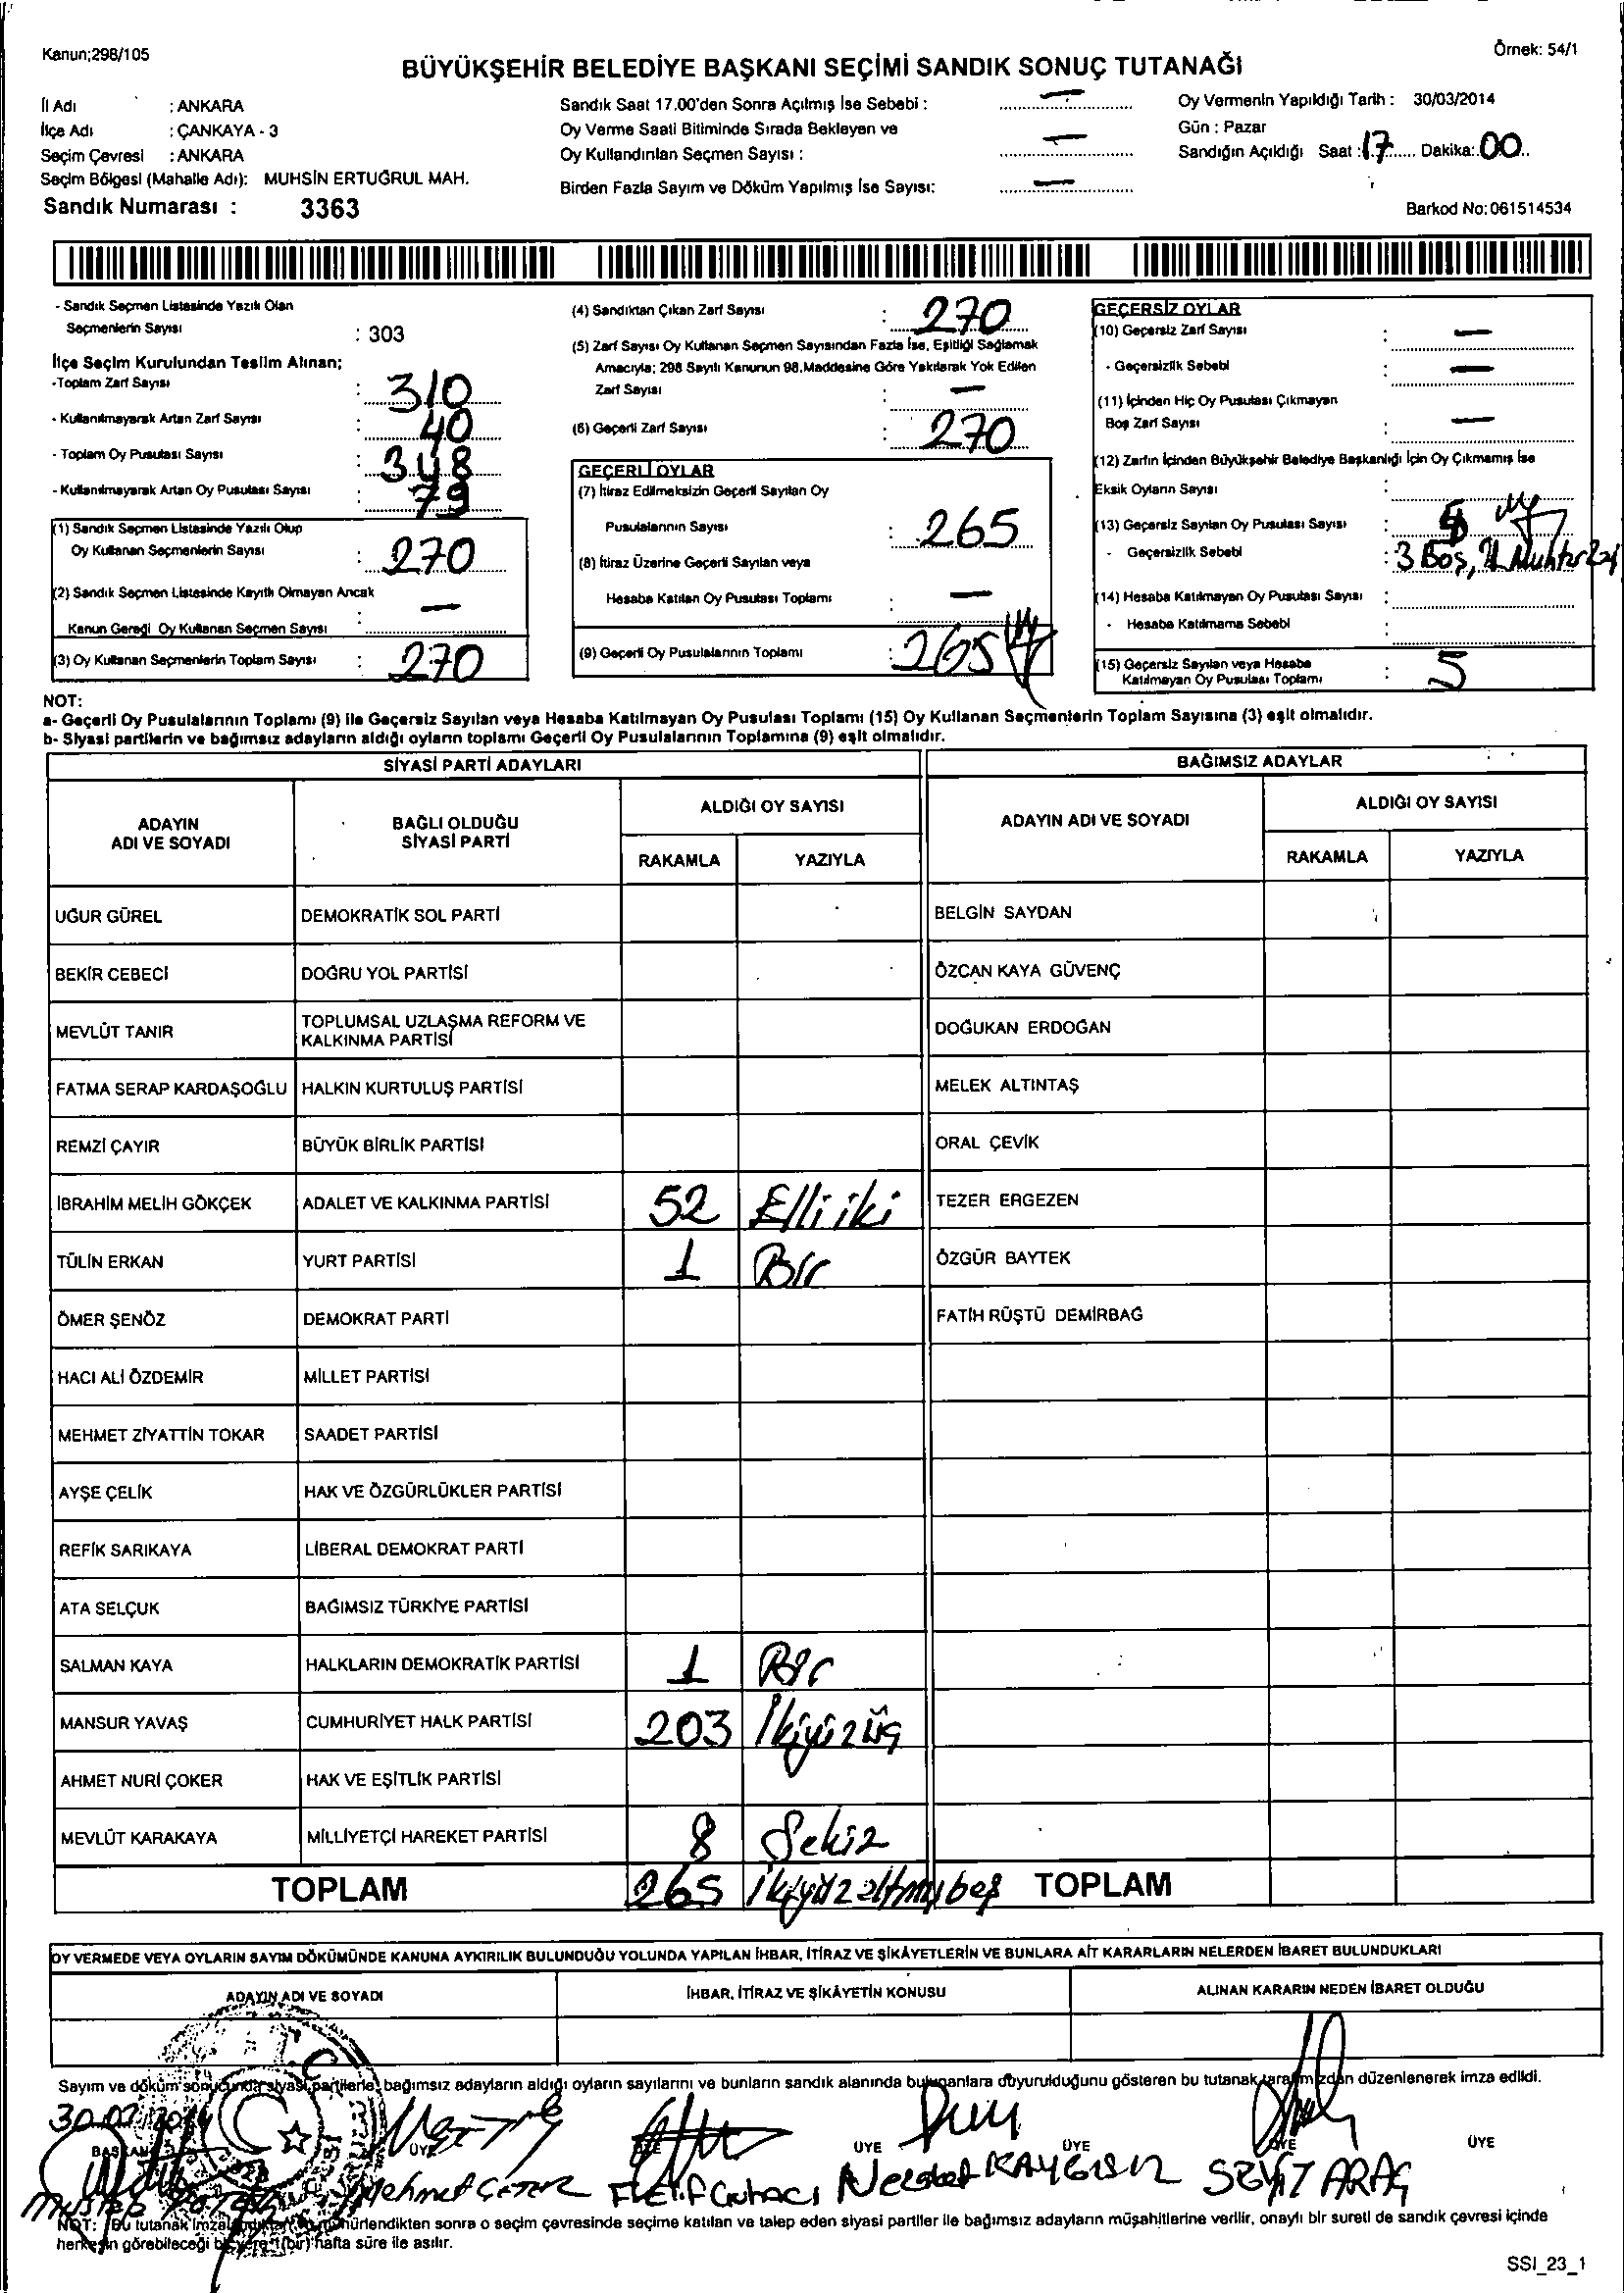 Kanun;298/105
Örnek: 54/1
BÜYÜKŞEHİR BELEDİYE BAŞKANI SEÇİMİ SANDIK SONUÇ TUTANAĞI
İl Adı : ANKARA
İlçe Adı : ÇANKAYA - 3
Seçim Çevresi : ANKARA
Seçim Bölgesi (Mahalle Adı): MUHSİN ERTUĞRUL MAH.
Sandık Numarası : 3363
Sandık Saat 17.00'den Sonra Açılmış İse Sebebi : —
Oy Verme Saati Bitiminde Sırada Bekleyen ve
Oy Kullandırılan Seçmen Sayısı : —
Birden Fazla Sayım ve Döküm Yapılmış İse Sayısı: —
Oy Vermenin Yapıldığı Tarih : 30/03/2014
Gün : Pazar
Sandığın Açıldığı Saat : 17 Dakika: 00
Barkod No: 061514534
- Sandık Seçmen Listesinde Yazılı Olan
Seçmenlerin Sayısı : 303
İlçe Seçim Kurulundan Teslim Alınan;
-Toplam Zarf Sayısı : 310
- Kullanılmayarak Artan Zarf Sayısı : 40
- Toplam Oy Pusulası Sayısı : 348
- Kullanılmayarak Artan Oy Pusulası Sayısı : 79
(1) Sandık Seçmen Listesinde Yazılı Olup
Oy Kullanan Seçmenlerin Sayısı : 270
(2) Sandık Seçmen Listesinde Kayıtlı Olmayan Ancak
Kanun Gereği Oy Kullanan Seçmen Sayısı : —
(3) Oy Kullanan Seçmenlerin Toplam Sayısı : 270
(4) Sandıktan Çıkan Zarf Sayısı : 270
(5) Zarf Sayısı Oy Kullanan Seçmen Sayısından Fazla İse, Eşitliği Sağlamak
Amacıyla; 298 Sayılı Kanunun 98.Maddesine Göre Yakılarak Yok Edilen
Zarf Sayısı : —
(6) Geçerli Zarf Sayısı : 270
GEÇERLİ OYLAR
(7) İtiraz Edilmeksizin Geçerli Sayılan Oy
Pusulalarının Sayısı : 265
(8) İtiraz Üzerine Geçerli Sayılan veya
Hesaba Katılan Oy Pusulası Toplamı : —
(9) Geçerli Oy Pusulalarının Toplamı : 265
GEÇERSİZ OYLAR
(10) Geçersiz Zarf Sayısı : —
- Geçersizlik Sebebi : —
(11) İçinden Hiç Oy Pusulası Çıkmayan
Boş Zarf Sayısı : —
(12) Zarfın İçinden Büyükşehir Belediye Başkanlığı İçin Oy Çıkmamış İse
Eksik Oyların Sayısı :
(13) Geçersiz Sayılan Oy Pusulası Sayısı :
- Geçersizlik Sebebi : 3 Boş,
(14) Hesaba Katılmayan Oy Pusulası Sayısı :
- Hesaba Katılmama Sebebi :
(15) Geçersiz Sayılan veya Hesaba
Katılmayan Oy Pusulası Toplamı : 5
NOT:
a- Geçerli Oy Pusulalarının Toplamı (9) ile Geçersiz Sayılan veya Hesaba Katılmayan Oy Pusulası Toplamı (15) Oy Kullanan Seçmenlerin Toplam Sayısına (3) eşit olmalıdır.
b- Siyasi partilerin ve bağımsız adayların aldığı oyların toplamı Geçerli Oy Pusulalarının Toplamına (9) eşit olmalıdır.
SİYASİ PARTİ ADAYLARI
ADAYIN ADI VE SOYADI
BAĞLI OLDUĞU SİYASİ PARTİ
ALDIĞI OY SAYISI
RAKAMLA YAZIYLA
UĞUR GÜREL DEMOKRATİK SOL PARTİ
BEKİR CEBECİ DOĞRU YOL PARTİSİ
MEVLÜT TANIR TOPLUMSAL UZLAŞMA REFORM VE
KALKINMA PARTİSİ
FATMA SERAP KARDAŞOĞLU HALKIN KURTULUŞ PARTİSİ
REMZİ ÇAYIR BÜYÜK BİRLİK PARTİSİ
İBRAHİM MELİH GÖKÇEK ADALET VE KALKINMA PARTİSİ 52 Elli iki
TÜLİN ERKAN YURT PARTİSİ 1 Bir
ÖMER ŞENÖZ DEMOKRAT PARTİ
HACI ALİ ÖZDEMİR MİLLET PARTİSİ
MEHMET ZİYATTİN TOKAR SAADET PARTİSİ
AYŞE ÇELİK HAK VE ÖZGÜRLÜKLER PARTİSİ
REFİK SARIKAYA LİBERAL DEMOKRAT PARTİ
ATA SELÇUK BAĞIMSIZ TÜRKİYE PARTİSİ
SALMAN KAYA HALKLARIN DEMOKRATİK PARTİSİ 1 Bir
MANSUR YAVAŞ CUMHURİYET HALK PARTİSİ 203 İkiyüzüç
AHMET NURİ ÇOKER HAK VE EŞİTLİK PARTİSİ
MEVLÜT KARAKAYA MİLLİYETÇİ HAREKET PARTİSİ 8 Sekiz
TOPLAM 265 İkiyüzaltmışbeş
BAĞIMSIZ ADAYLAR
ADAYIN ADI VE SOYADI
ALDIĞI OY SAYISI
RAKAMLA YAZIYLA
BELGİN SAYDAN
ÖZCAN KAYA GÜVENÇ
DOĞUKAN ERDOĞAN
MELEK ALTINTAŞ
ORAL ÇEVİK
TEZER ERGEZEN
ÖZGÜR BAYTEK
FATİH RÜŞTÜ DEMİRBAĞ
TOPLAM
OY VERMEDE VEYA OYLARIN SAYIM DÖKÜMÜNDE KANUNA AYKIRILIK BULUNDUĞU YOLUNDA YAPILAN İHBAR, İTİRAZ VE ŞİKÂYETLERİN VE BUNLARA AİT KARARLARIN NELERDEN İBARET BULUNDUKLARI
ADAYIN ADI VE SOYADI
İHBAR, İTİRAZ VE ŞİKÂYETİN KONUSU
ALINAN KARARIN NEDEN İBARET OLDUĞU
Sayım ve döküm sonucunda siyasi partilerle, bağımsız adayların aldığı oyların sayılarını ve bunların sandık alanında bulunanlara duyurulduğunu gösteren bu tutanak tarafımızdan düzenlenerek imza edildi.
BAŞKAN ÜYE ÜYE ÜYE ÜYE ÜYE ÜYE
Mehmet
SEYİT ARAÇ
NOT: Bu tutanak mühürlendikten sonra o seçim çevresinde seçime katılan ve talep eden siyasi partiler ile bağımsız adayların müşahitlerine verilir, onaylı bir sureti de sandık çevresi içinde
herkesin görebileceği bir yere 1 (bir) hafta süre ile asılır.
SSI_23_1